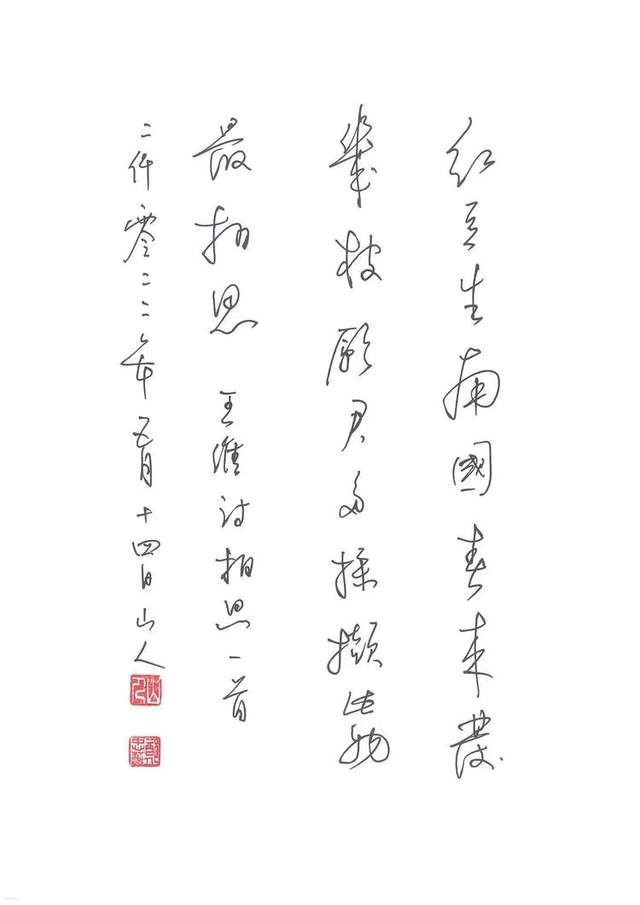 红豆生南國春来發
幾枝願君多採擷此物
最相思 王維诗相思一首
二仟零二二年五月十四日山人